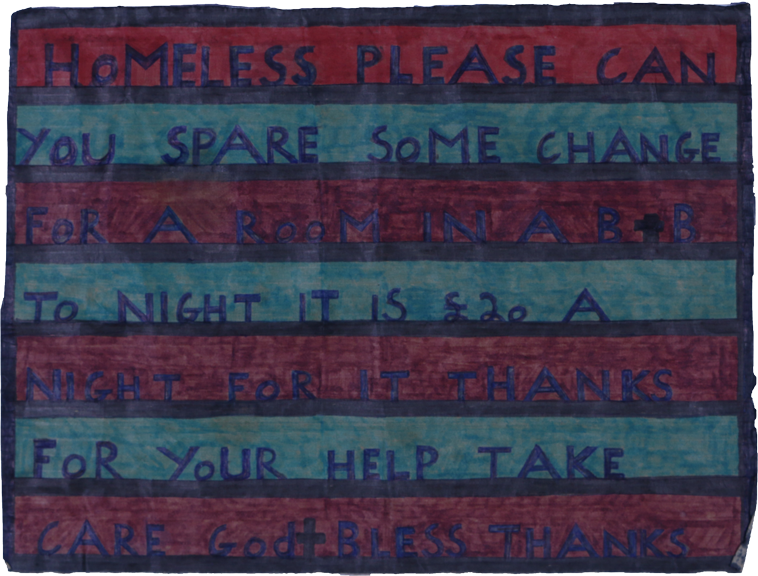 HOMELESS PLEASE CAN
YOU SPARE SOME CHANGE
FOR A ROOM IN A B+B
TO NIGHT IT IS £20 A
NIGHT FOR IT THANKS
FOR YOUR HELP TAKE
CARE God✝BLESS THANKS